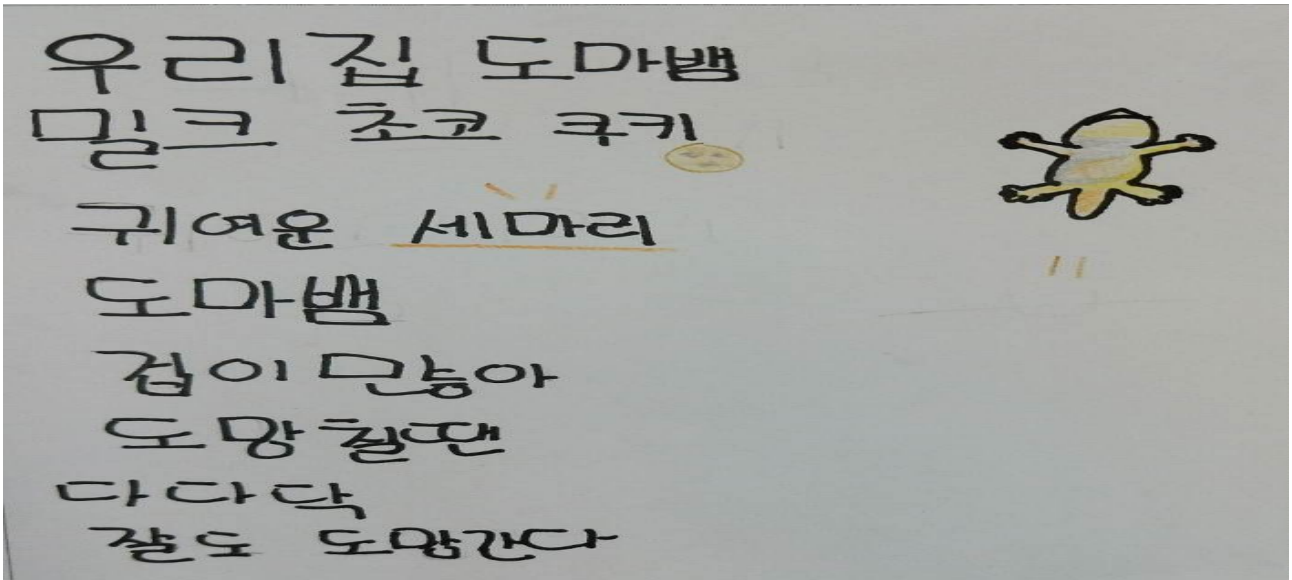 우리집 도마뱀
밀크 초코 쿠키
귀여운 세마리
도마뱀
겁이 많아
도망칠땐
다다닥
잘도 도망간다